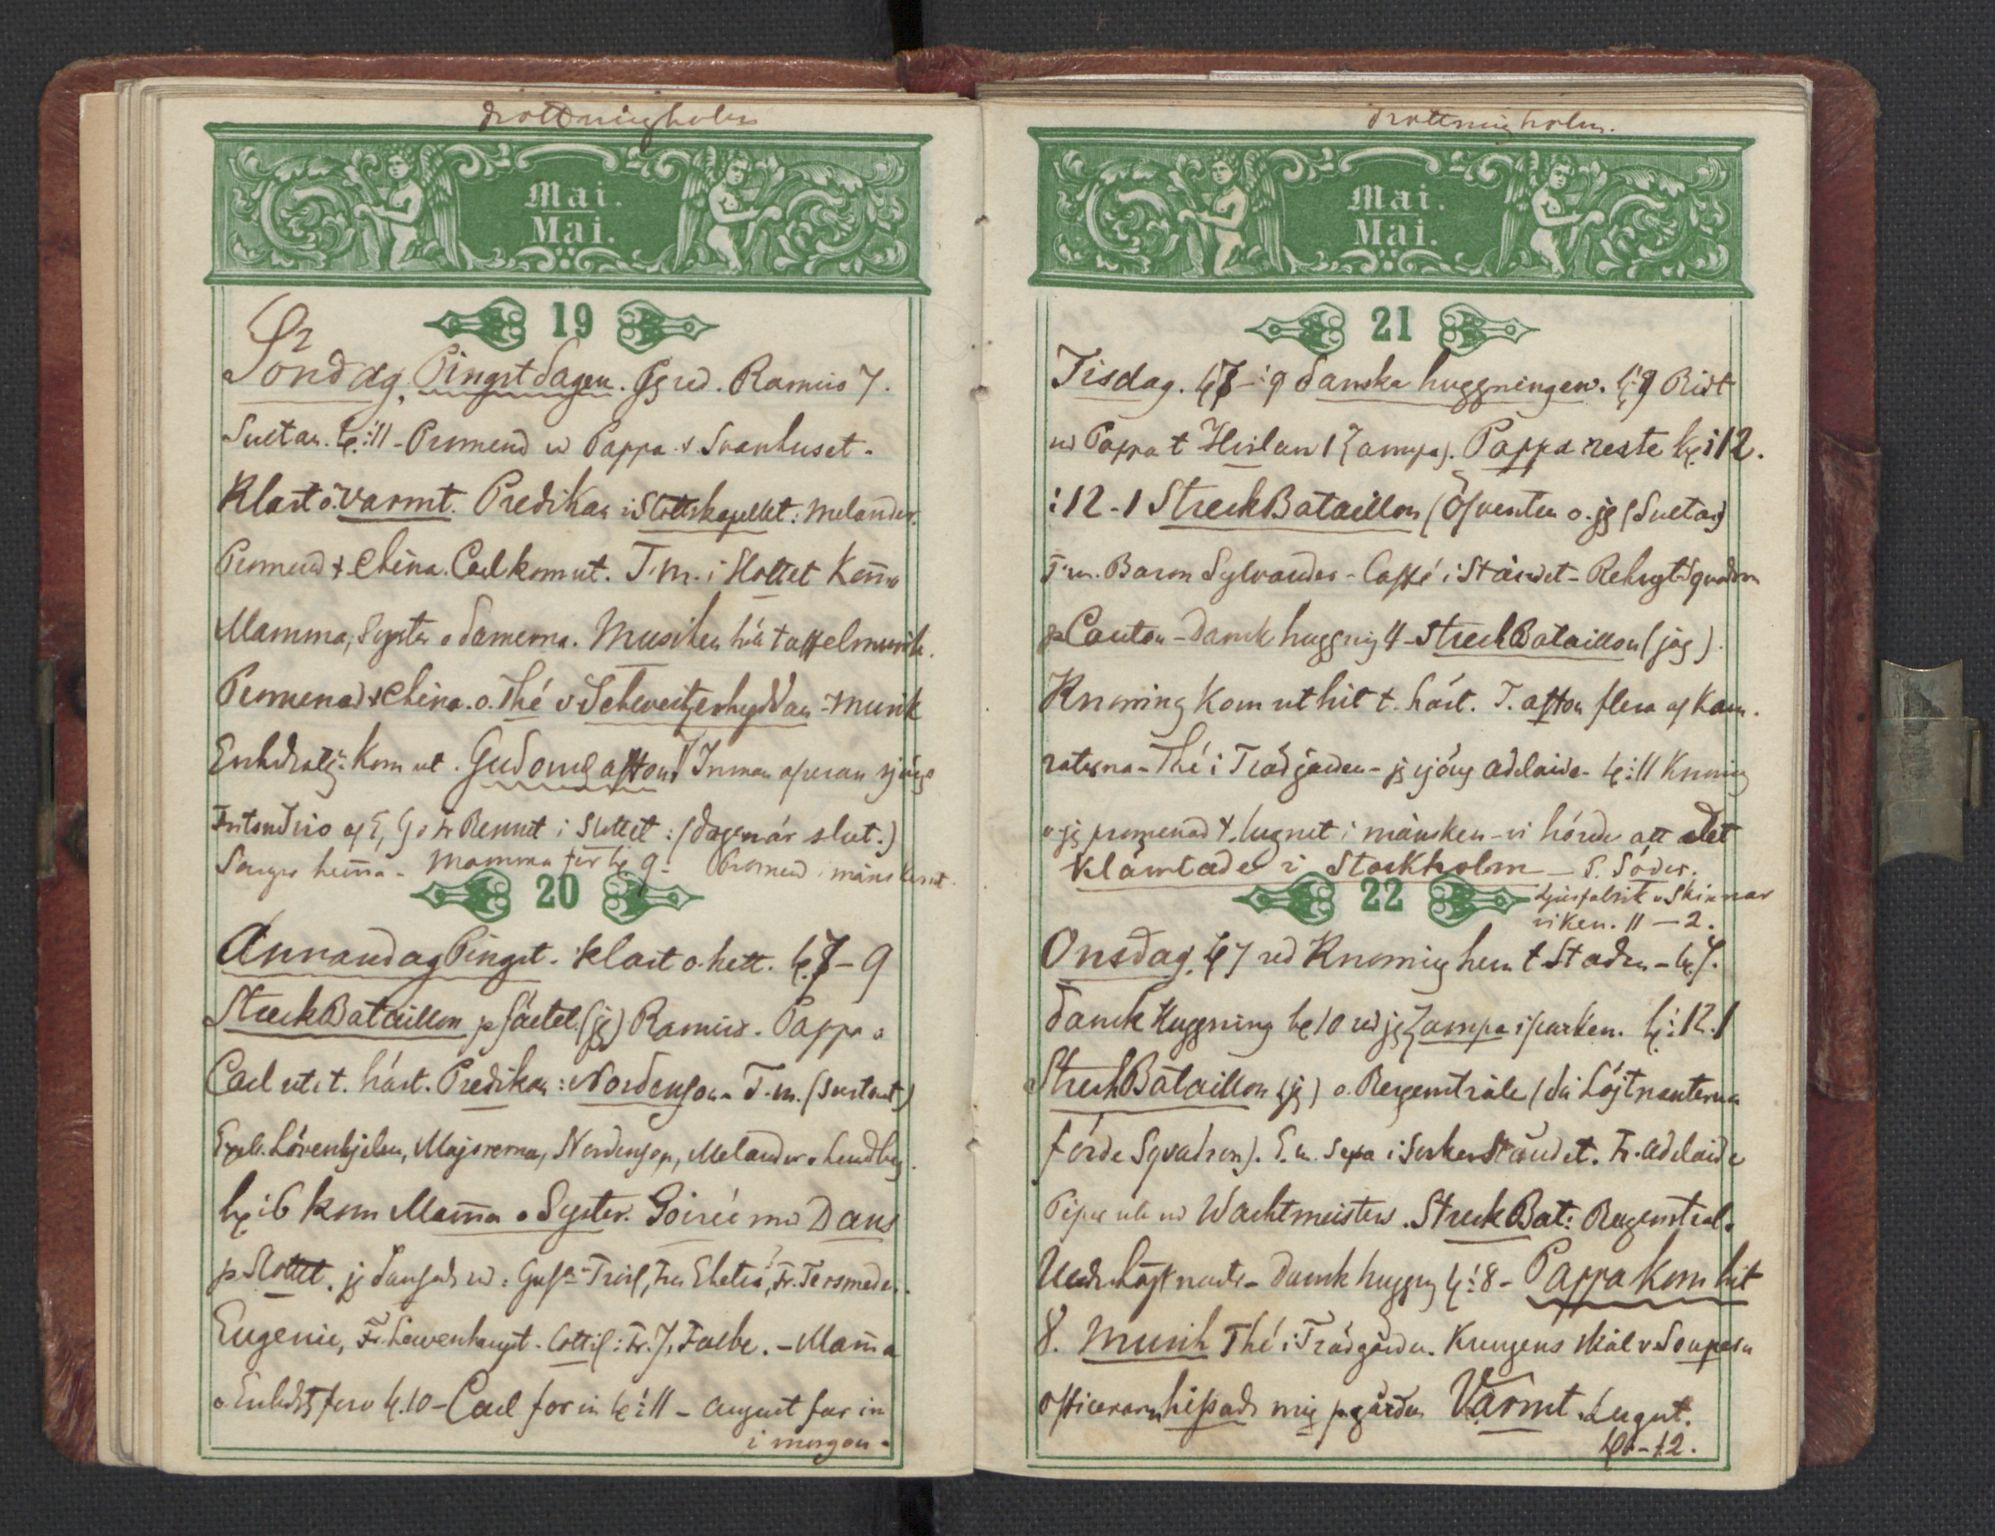 Drottningholm
Mai.
Mai.
19
Söndag, Pingstdagen. Jg red. Ramiro 7.
Suetan. kl: 11 - Promend Pappa t Svanhuset -
Klart o. varmt. Predikan i Slottskapellet: Melander.
Promend t China. Carl kom ut. T. m. i Slottet Kom̄o
Mamma, Syster o damerna. Musiken höll taffelmusik.
Promenad t China. o. Thé v Schweitzerhyddan - Musik
kom ut. Gudoml afton! Innan operan sjöngs
af E, G o Fr Bennet i Slottet: (dagen är slut.)
Sånger hem̄a - Mamma for kl 9 - Promend i månskenet.
20
Annandag Pingst. klart o. hett. kl. 7 - 9
StreckBataillon p fäetel (jg) Ramiro. Pappa o
Carl ut t. häst. Predikan: Nordenson - T. m. (Suetant)
Lövenhjelm, Majorerna, Nordenson, Melander o Lindbeg.
kl: 6 kom Mam̄a o Syster. Soirée md Dans
p Slottet. jg dansade :
Eugenie, Fr. Lewenhaupt. Cottil: Fr. J. Falbe. - Mam̄a
o foro kl. 10 - Carl for in kl: 11 - August far in
i morgon -
Drottningholm.
Mai.
Mai.
21
Tisdag. kl 7 - : 9 danska huggningen. kl: 9 Ridt
Pappa t (Zampa). Pappa reste kl: 12.
: 12 - 1 StreckBataillon ( o. jg (Suetan)
T. m. Baron Sylvander - Caffé i Ståndet -
p Canton - Dansk huggnig 4 - StreckBataillon (jag).
Knorring kom ut hit t. häst. T. afton flera af Kam.
raterna - Thé i Trädgården - jg sjöng Adelaide - kl: 11 Knorring
o jg promenad t. lugnet i månsken - vi hörde att det
klämtade i Stockholm - S. Söder.
Ljusfabrik v Skinnar
viken. 11 - 2.
22
Onsdag. kl 7 red Knorring hem t. Staden - kl 7.
dansk Huggning kl 10 red jg Zampa i parken. kl: 12. 1
StreckBataillon (jg) o. Regemtsåle (då Löjtnanterna
förde Sqvadron). E. m. Sexa i Sockerståndet. Fr. Adelaide
Piper ute Wachtmeisters. StreckBat: Regemtsal.
UnderLöjtnants - Dansk huggng kl: 8 - Pappa kom hit
8. Musik Thé i Trädgården. Kungens skål v. Soupern
officerarna hissade mig p gården Varmt. Lugnt.
kl - 12.